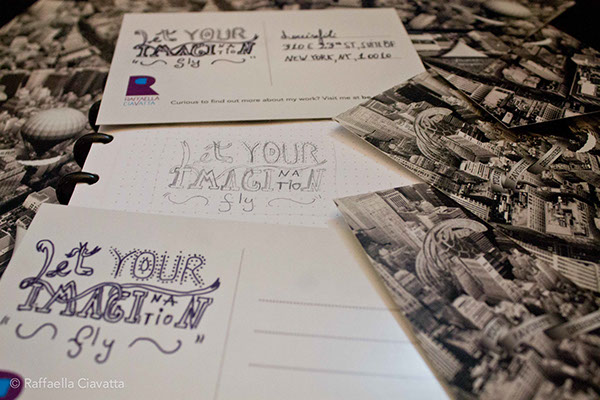 Let YOUR
IMAGINATION
fly
R
RAFFAELLA
CIAVATTA
310 E 23RD ST, SUITE
NEW YORK, NY, 10010
Curious to find out more about my work? Visit me at be
Let YOUR
IMAGINATION
fly
Let YOUR
IMAGINATION
"fly"
© Raffaella Ciavatta